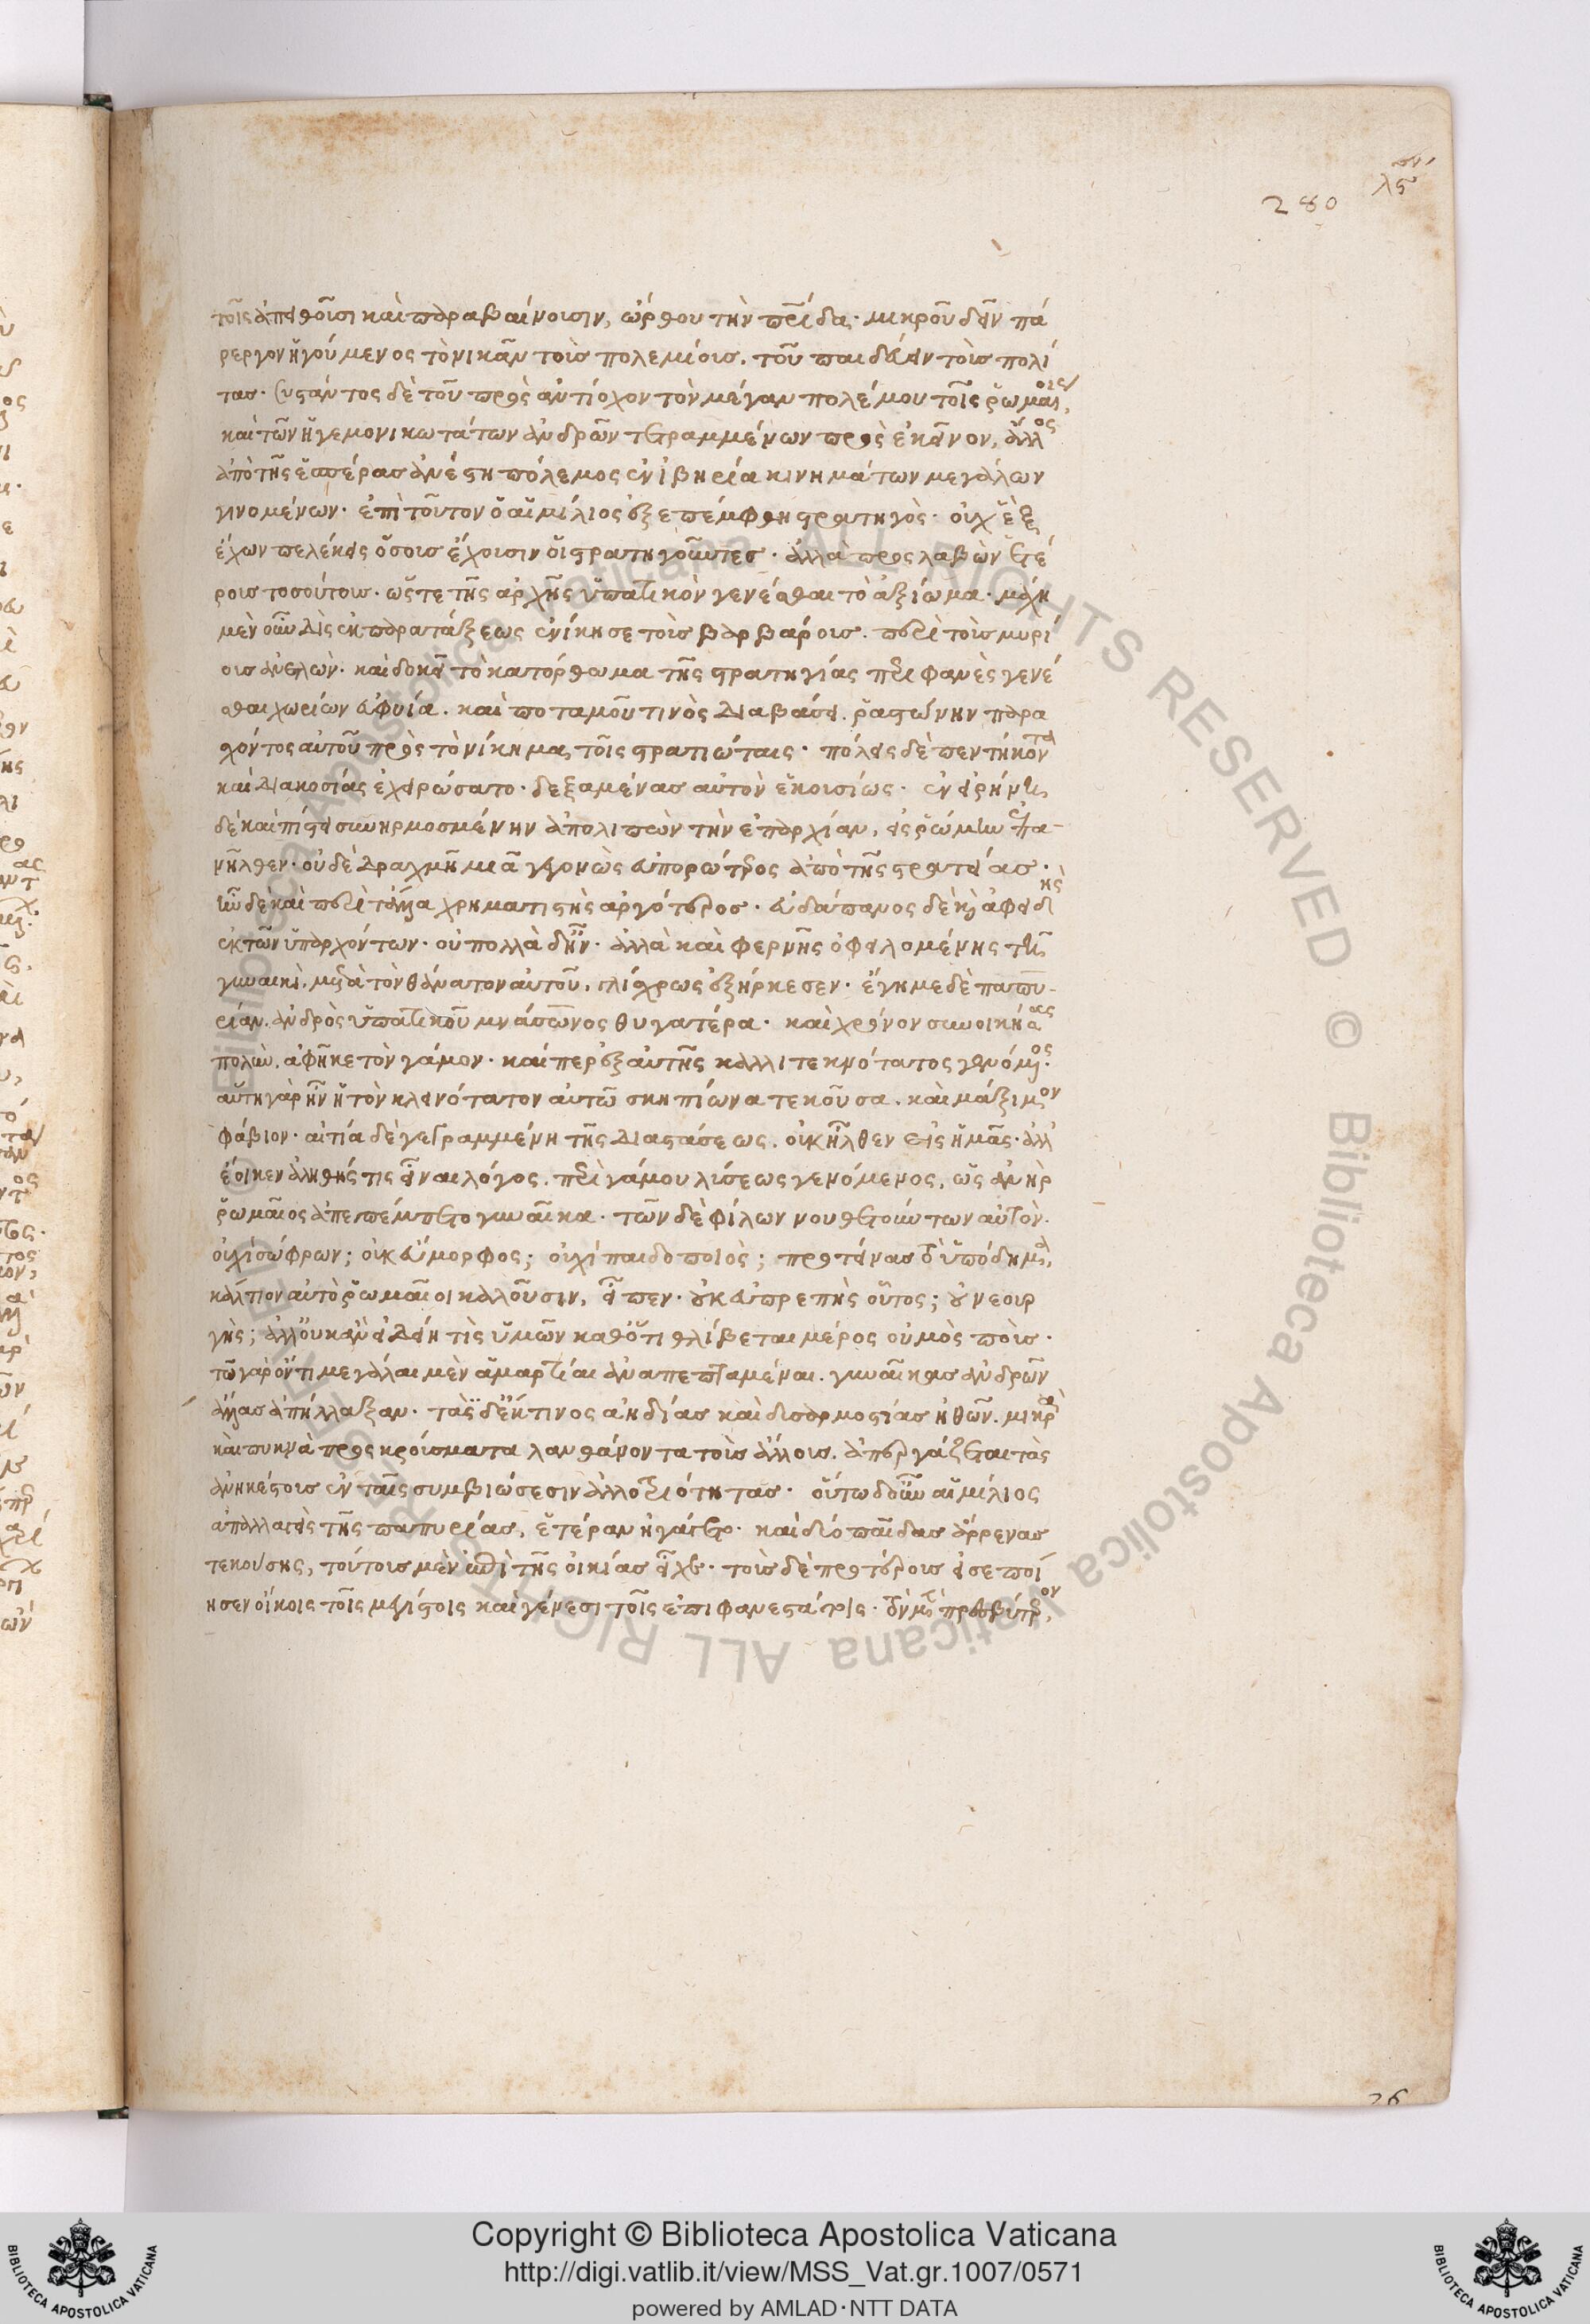 σν´
λς
280
τοῖς ἀπειθοῦσι καὶ παραβαίνουσιν, ὤρθου τὴν πατρίδα· μικροῦ δεῖν πά
ρεργον ἡγούμενος τὸ νικᾶν τοὺς πολεμίους, τοῦ παιδεύειν τοὺς πολί
τας. συστάντος δὲ τοῦ πρὸς ἀντίοχον τὸν μέγαν πολέμου τοῖς ῥωμαίοις,
καὶ τῶν ἡγεμονικωτάτων ἀνδρῶν τετραμμένων πρὸς ἐκεῖνον, ἄλλος
ἀπὸ τῆς ἑσπέρας ἀνέστη πόλεμος ἐν ἰβηρία κινημάτων μεγάλων
γινομένων. ἐπὶ τοῦτον ὁ αἰμίλιος ἐξεπέμφθη στρατηγὸς· οὐχ ἓξ
ἔχων πελέκεις ὅσους ἔχουσιν οἱ στρατηγοῦντες· ἀλλὰ προσλαβὼν ἑτέ
ρους τοσούτους· ὥστε τῆς ἀρχῆς ὑπατικὸν γενέσθαι τὸ ἀξίωμα. μάχη
μὲν οὖν δὶς ἐκ παρατάξεως ἐνίκησε τοὺς βαρβάρους. περὶ τρισμυρί
ους ἀνελὼν· καὶ δοκεῖ τὸ κατόρθωμα τῆς στρατηγίας περιφανὲς γενέ
σθαι χωρίων εὐφυία. καὶ ποταμοῦ τινὸς διαβάσει. ῥαστώνην παρα
σχόντος αὐτοῦ πρὸς τὸ νίκημα, τοῖς στρατιώταις· πόλεις δὲ πεντήκοντα
καὶ διακοσίας ἐχειρώσατο· δεξαμένας αὐτὸν ἑκουσίως· ἐν εἰρήνῃ
δὲ καὶ πίστει συνηρμοσμένην ἀπολιπὼν τὴν ἐπαρχίαν, εἰς ῥώμην ἐπα-
νῆλθεν· οὐδὲ δραχμῇ μιᾶ γεγονὼς εὐπορώτερος ἀπὸ τῆς στρατείας.
ἦν δὲ καὶ περὶ τἄλλα χρηματιστὴς ἀργότερος· εὐδάπανος δὲ καὶ ἀφειδὴς
ἐκ τῶν ὑπαρχόντων· οὐ πολλὰ δ' ἦν· ἀλλὰ καὶ φερνῆς ὀφειλομένης τῇ
γυναικὶ, μετὰ τὸν θάνατον αὐτοῦ, γλίσχρως ἐξήρκεσεν. ἔγημε δὲ παπυ-
ρίαν, ἀνδρὸς ὑπατικοῦ μνάσωνος θυγατέρα· καὶ χρόνον συνοικήσας
πολὺν, ἀφῆκε τὸν γάμον· καίπερ ἐξ αὐτῆς καλλιτεκνότατος γενόμενος.
αὕτη γὰρ ἦν ἡ τὸν κλεινότατον αὐτῶ σκηπίωνα τεκοῦσα, καὶ μάξιμον
φάβιον· αἰτία δὲ γεγραμμένη τῆς διαστάσεως, οὐκ ἦλθεν εἰς ἡμᾶς· ἀλλ'
ἔοικεν ἀληθής τις εἶναι λόγος, περὶ γάμου λύσεως γενόμενος, ὡς ἀνὴρ
ῥωμαῖος ἀπεπέμπετο γυναῖκα· τῶν δὲ φίλων νουθετούντων αὐτὸν.
οὐχὶ σώφρων; οὐκ εὔμορφος; οὐχὶ παιδοποιὸς; προτείνας τὸ ὑπόδημα,
κάλτιον αὐτὸ ῥωμαῖοι καλοῦσιν, εἶπεν· οὐκ εὐπρεπὴς οὗτος; οὐ νεουρ
γὴς; ἀλλ' οὐκ ἂν εἰδείη τὶς ὑμῶν καθ' ὅ,τι θλίβεται μέρος οὑμὸς πούς.
τῶ γὰρ ὄντι μεγάλαι μὲν ἁμαρτίαι ἀναπεπταμέναι, γυναῖκας ἀνδρῶν
ἄλλας ἀπήλλαξαν· τὰ δ' ἔκ τινος ἀηδίας καὶ δυσαρμοστίας ἠθῶν, μικρὰ
καὶ πυκνὰ προσκρούσματα λανθάνοντα τοὺς ἄλλους, ἀπεργάζεται τὰς
ἀνηκέστους ἐν ταῖς συμβιώσεσιν ἀλλοτριότητας. οὕτω δ' οὖν αἰμίλιος
ἀπαλλαγεὶς τῆς παπυρίας, ἑτέραν ἠγάγετο· καὶ δύο παῖδας ἄρρενας
τεκούσης, τούτους μὲν ἐπὶ τῆς οἰκίας εἶχε· τοὺς δὲ προτέρους εἰσεποί
ησεν οἴκοις τοῖς μεγίστοις καὶ γένεσι τοῖς ἐπιφανεστάτοις. τὸν μὲν πρεσβύτερον,
26
Copyright © Biblioteca Apostolica Vaticana
http://digi.vatlib.it/view/MSS_Vat.gr.1007/0571
powered by AMLAD·NTT DATA